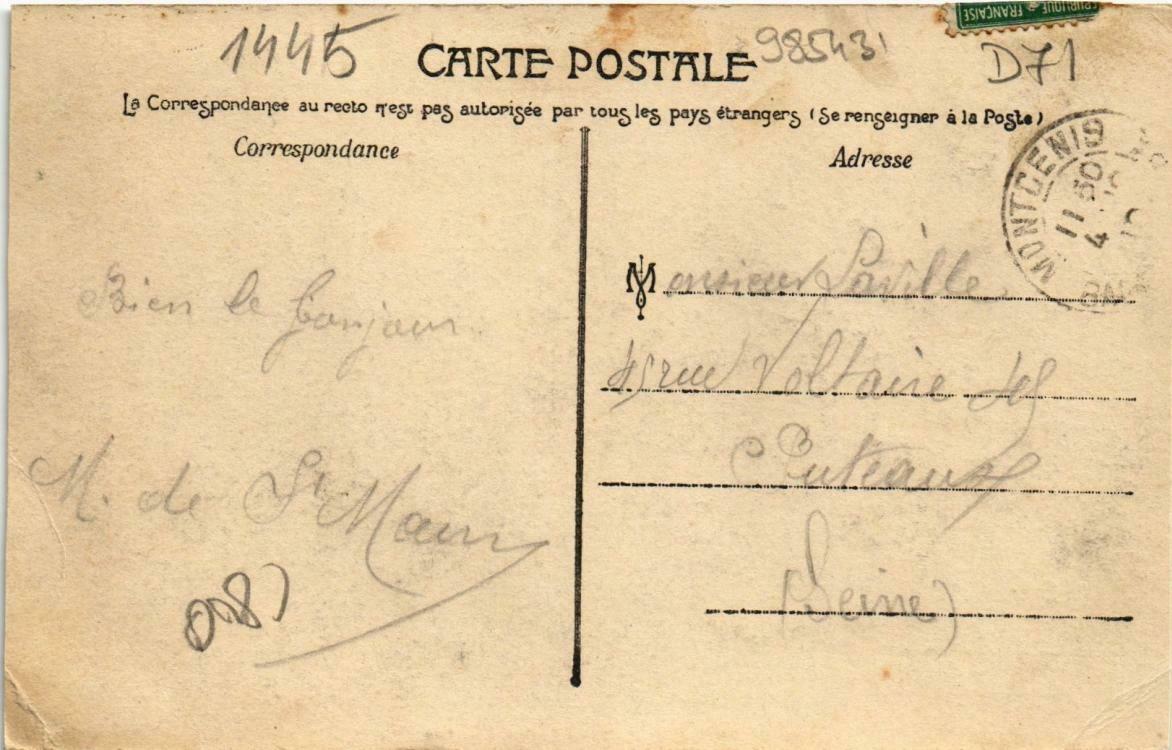 RÉPUBLIQUE FRANÇAISE
1445
985431
D71
CARTE POSTALE
La Correspondance au recto n'est pas autorisée par tous les pays étrangers (Se renseigner à la Poste)
Correspondance
Adresse
MONTCENIS
11 50
4
Monsieur Laville
45 rue Voltaire 45
Puteaux
(Seine)
Bien le bonjour
M. de St Maur